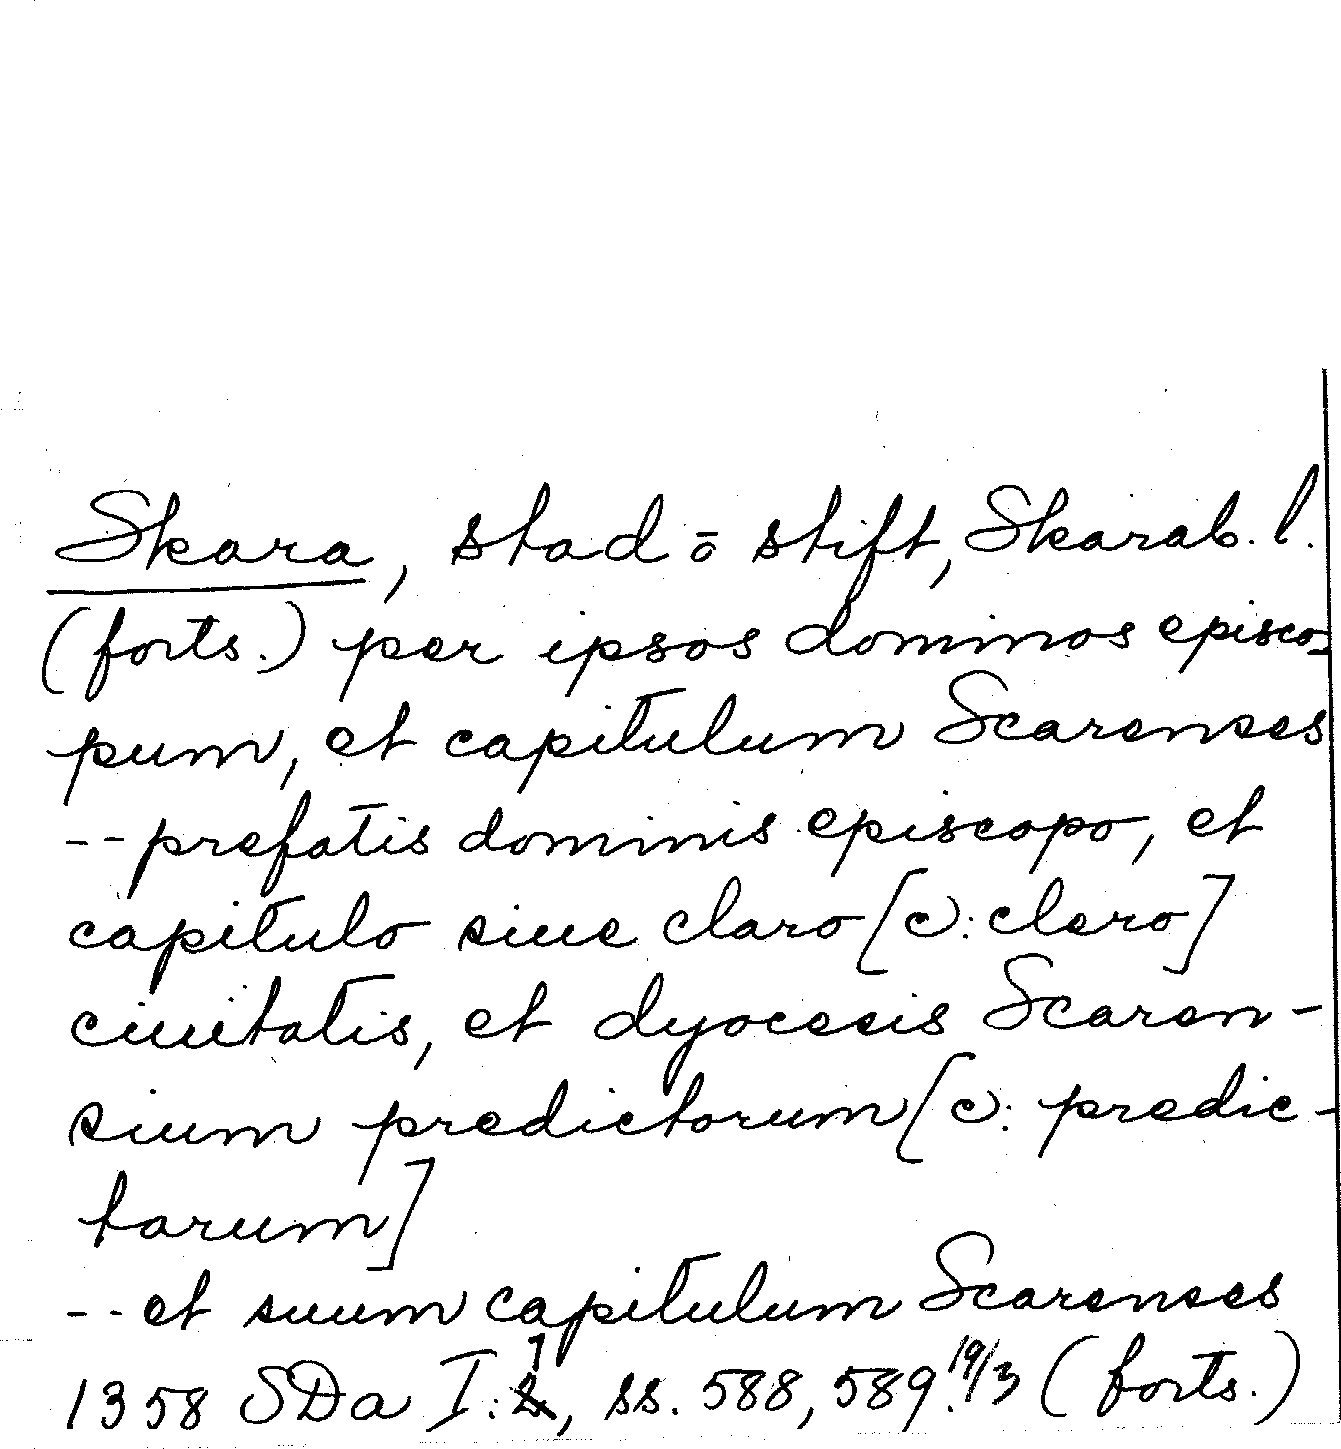 Skara, stad ō stift, Skarab. l.
(forts.) per ipsos dominos episco-
pum, et capitulum Scarenses
-- prefatis dominis episcopo, et
capitulo siue claro [ɔ: clero]
ciuitatis, et dyocesis Scaren-
sium predictorum [ɔ: predic-
tarum]
-- et suum capitulum Scarenses
1358 SDa I:1, ss. 588, 589. 19/3 (forts.)